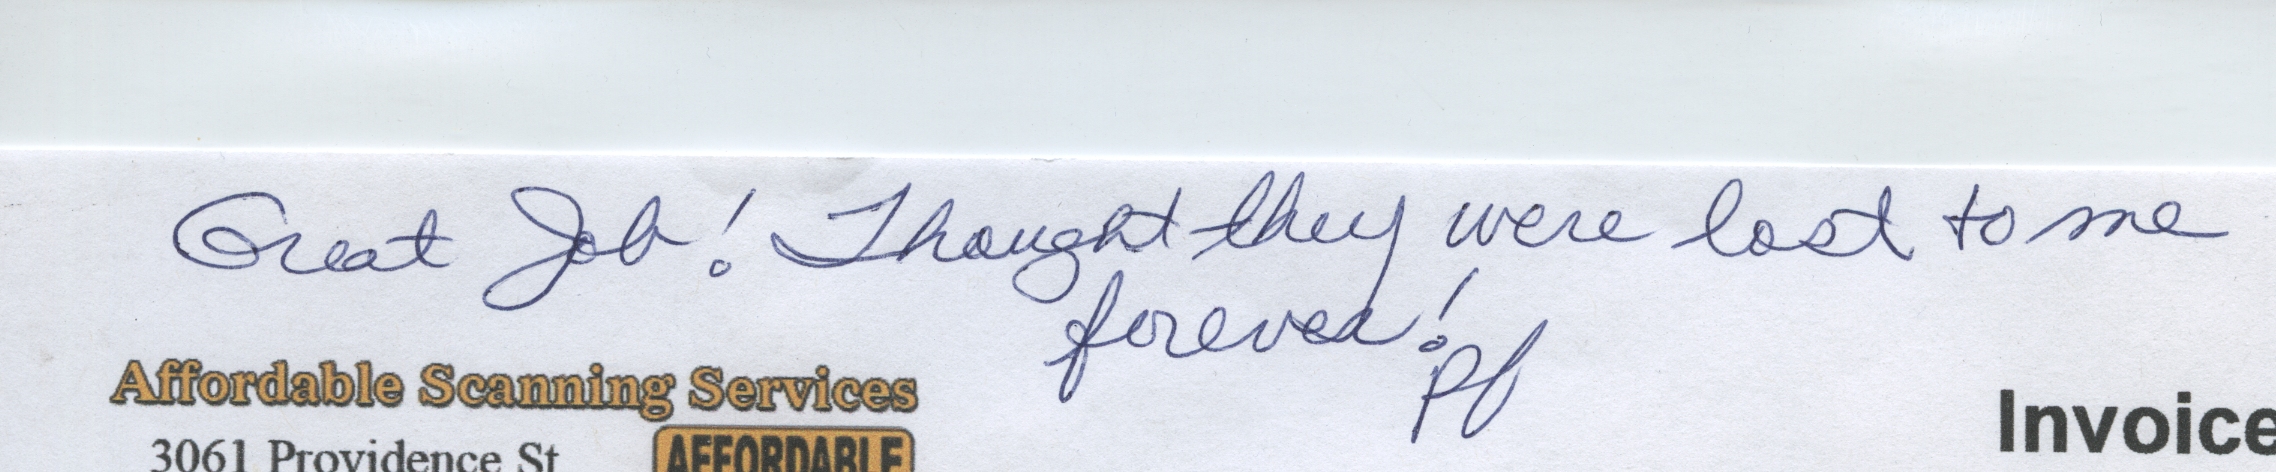 Great Job! Thought they were lost to me
forever!
Affordable Scanning Services
Invoice
3061 Providence St
AFFORDABLE